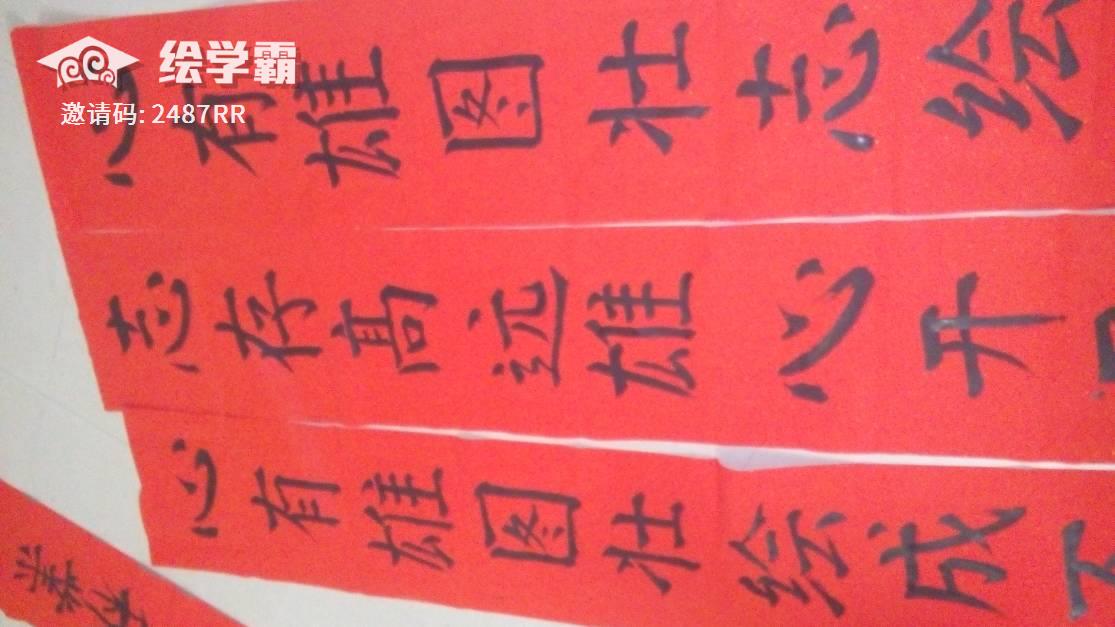 绘学霸
邀请码: 2487RR
心有雄图壮志绘
志存高远雄心开
心有雄图壮绘成